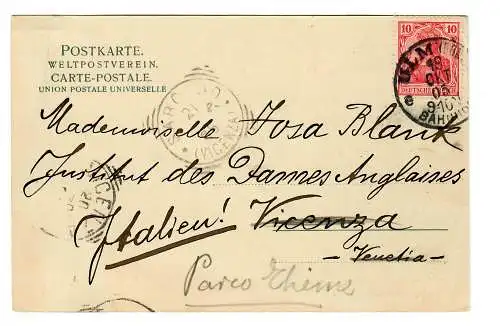 POSTKARTE.
WELTPOSTVEREIN.
CARTE-POSTALE.
UNION POSTALE UNIVERSELLE
10 10
DEUTSCHES REICH
ULM
OKT
05
9-10
BAHNHOF
(VICENZA)
21
Mademoiselle Josa Blank
Institut des Dames Anglaises
Italien! Vicenza
- Venetia -
Parco Thiene
VICEN
20